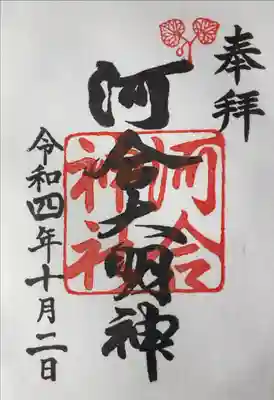 奉拝
河合大明神
河合
神社
令和四年十月二日